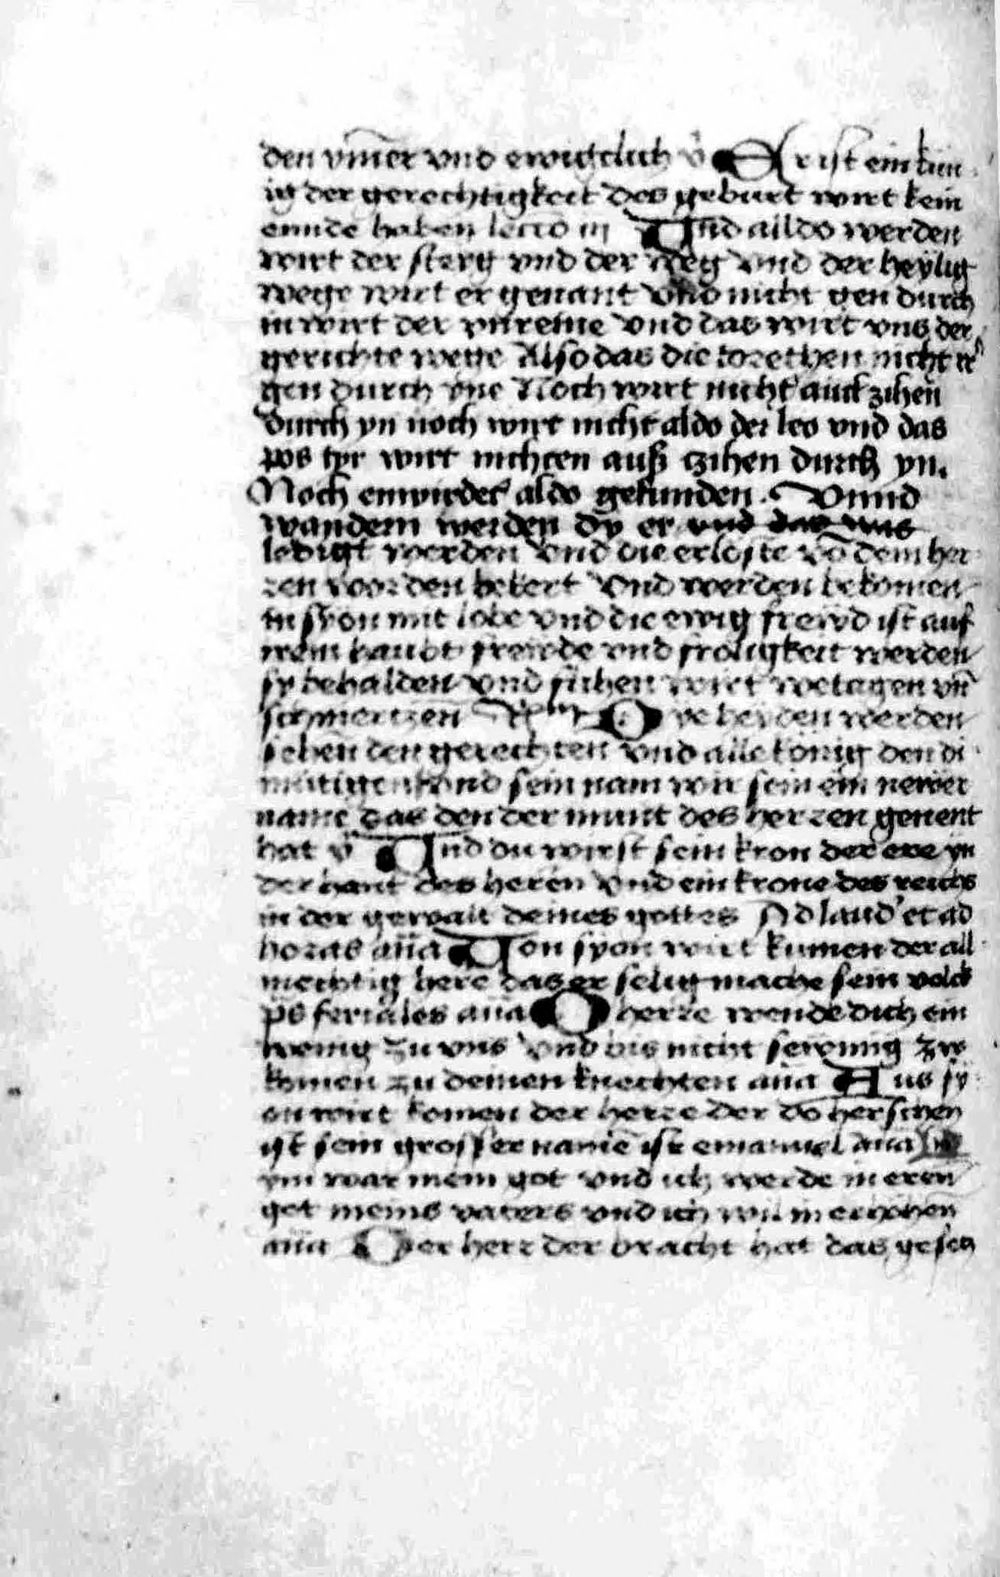 den vm̄er vnd ewigclich v̄ Er ist ein kün
ig der gerechtigkeit des geburt wirt kein
ennde haben lectio iij Vnd aildo werden
wirt der sterg vnd der weg vnd der heylig
wege wirt er genant vnd nicht gen durch
in wirt der vnreine vnd das wirt vns der
gerichte wege Also das die torethen nicht
gen durch yne Noch wirt nicht auch zihen
durch yn noch wirt nicht aldo der leo vnd das
pos tyr wirt nichten auß tzihen durch yn.
Noch enwirdet aldo gefunden. Vnnd
wandern werden dy er vnd das was
ledigt werden vnd die erloste vō dem her
ren worden bekert vnd werden bekomen
in syon mit lobe vnd die ewig frewd ist auf
irem haubt frewde vnd froligkeit werden
sy behalden vnd flihen wirt wetagen vn̄
schmertzen Dye heyden werden
sehen den gerechten vnd alle konig den di
mutigen vnd sein nam wir sein ein newer
name das den der munt des herren genent
hat v̄ Vnd du wirst sein kron der ere yn
der hant des heren vnd ein krone des reichs
in der gewalt deines gottes Ad laud' et ad
horas an̄a Von syon wirt kumen der all
mechtig here das er selig mache sein volck
ps̄ feriales an̄a O herre wende dich ein
wenig zu vns vnd bis nicht sewmig zw
komen zu deinen knechten an̄a Aus sy
on wirt komen der herre der do herschen
ist sein grosser name ist emanuel an̄a
ym war mein got vnd ich werde in eren
got meins vaters vnd ich wil in erhohen
an̄a Der herr der bracht hat das gesetz